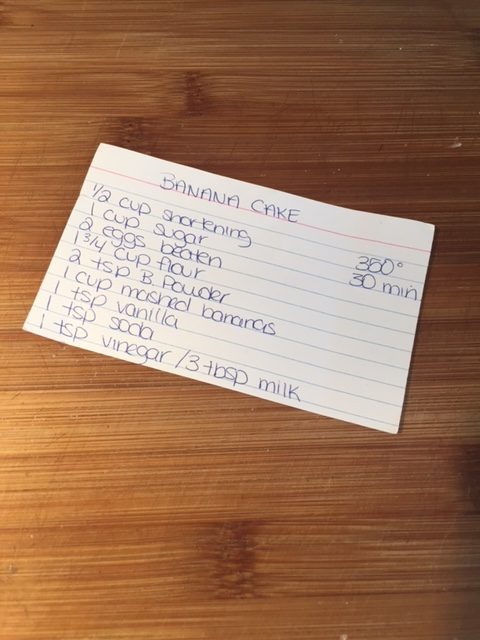 BANANA CAKE
1/2 cup shortening
1 cup sugar
2 eggs beaten
1 3/4 cup flour
2 tsp B. Powder
1 cup mashed bananas
1 tsp vanilla
1 tsp soda
1 tsp vinegar / 3 tbsp milk
350°
30 min